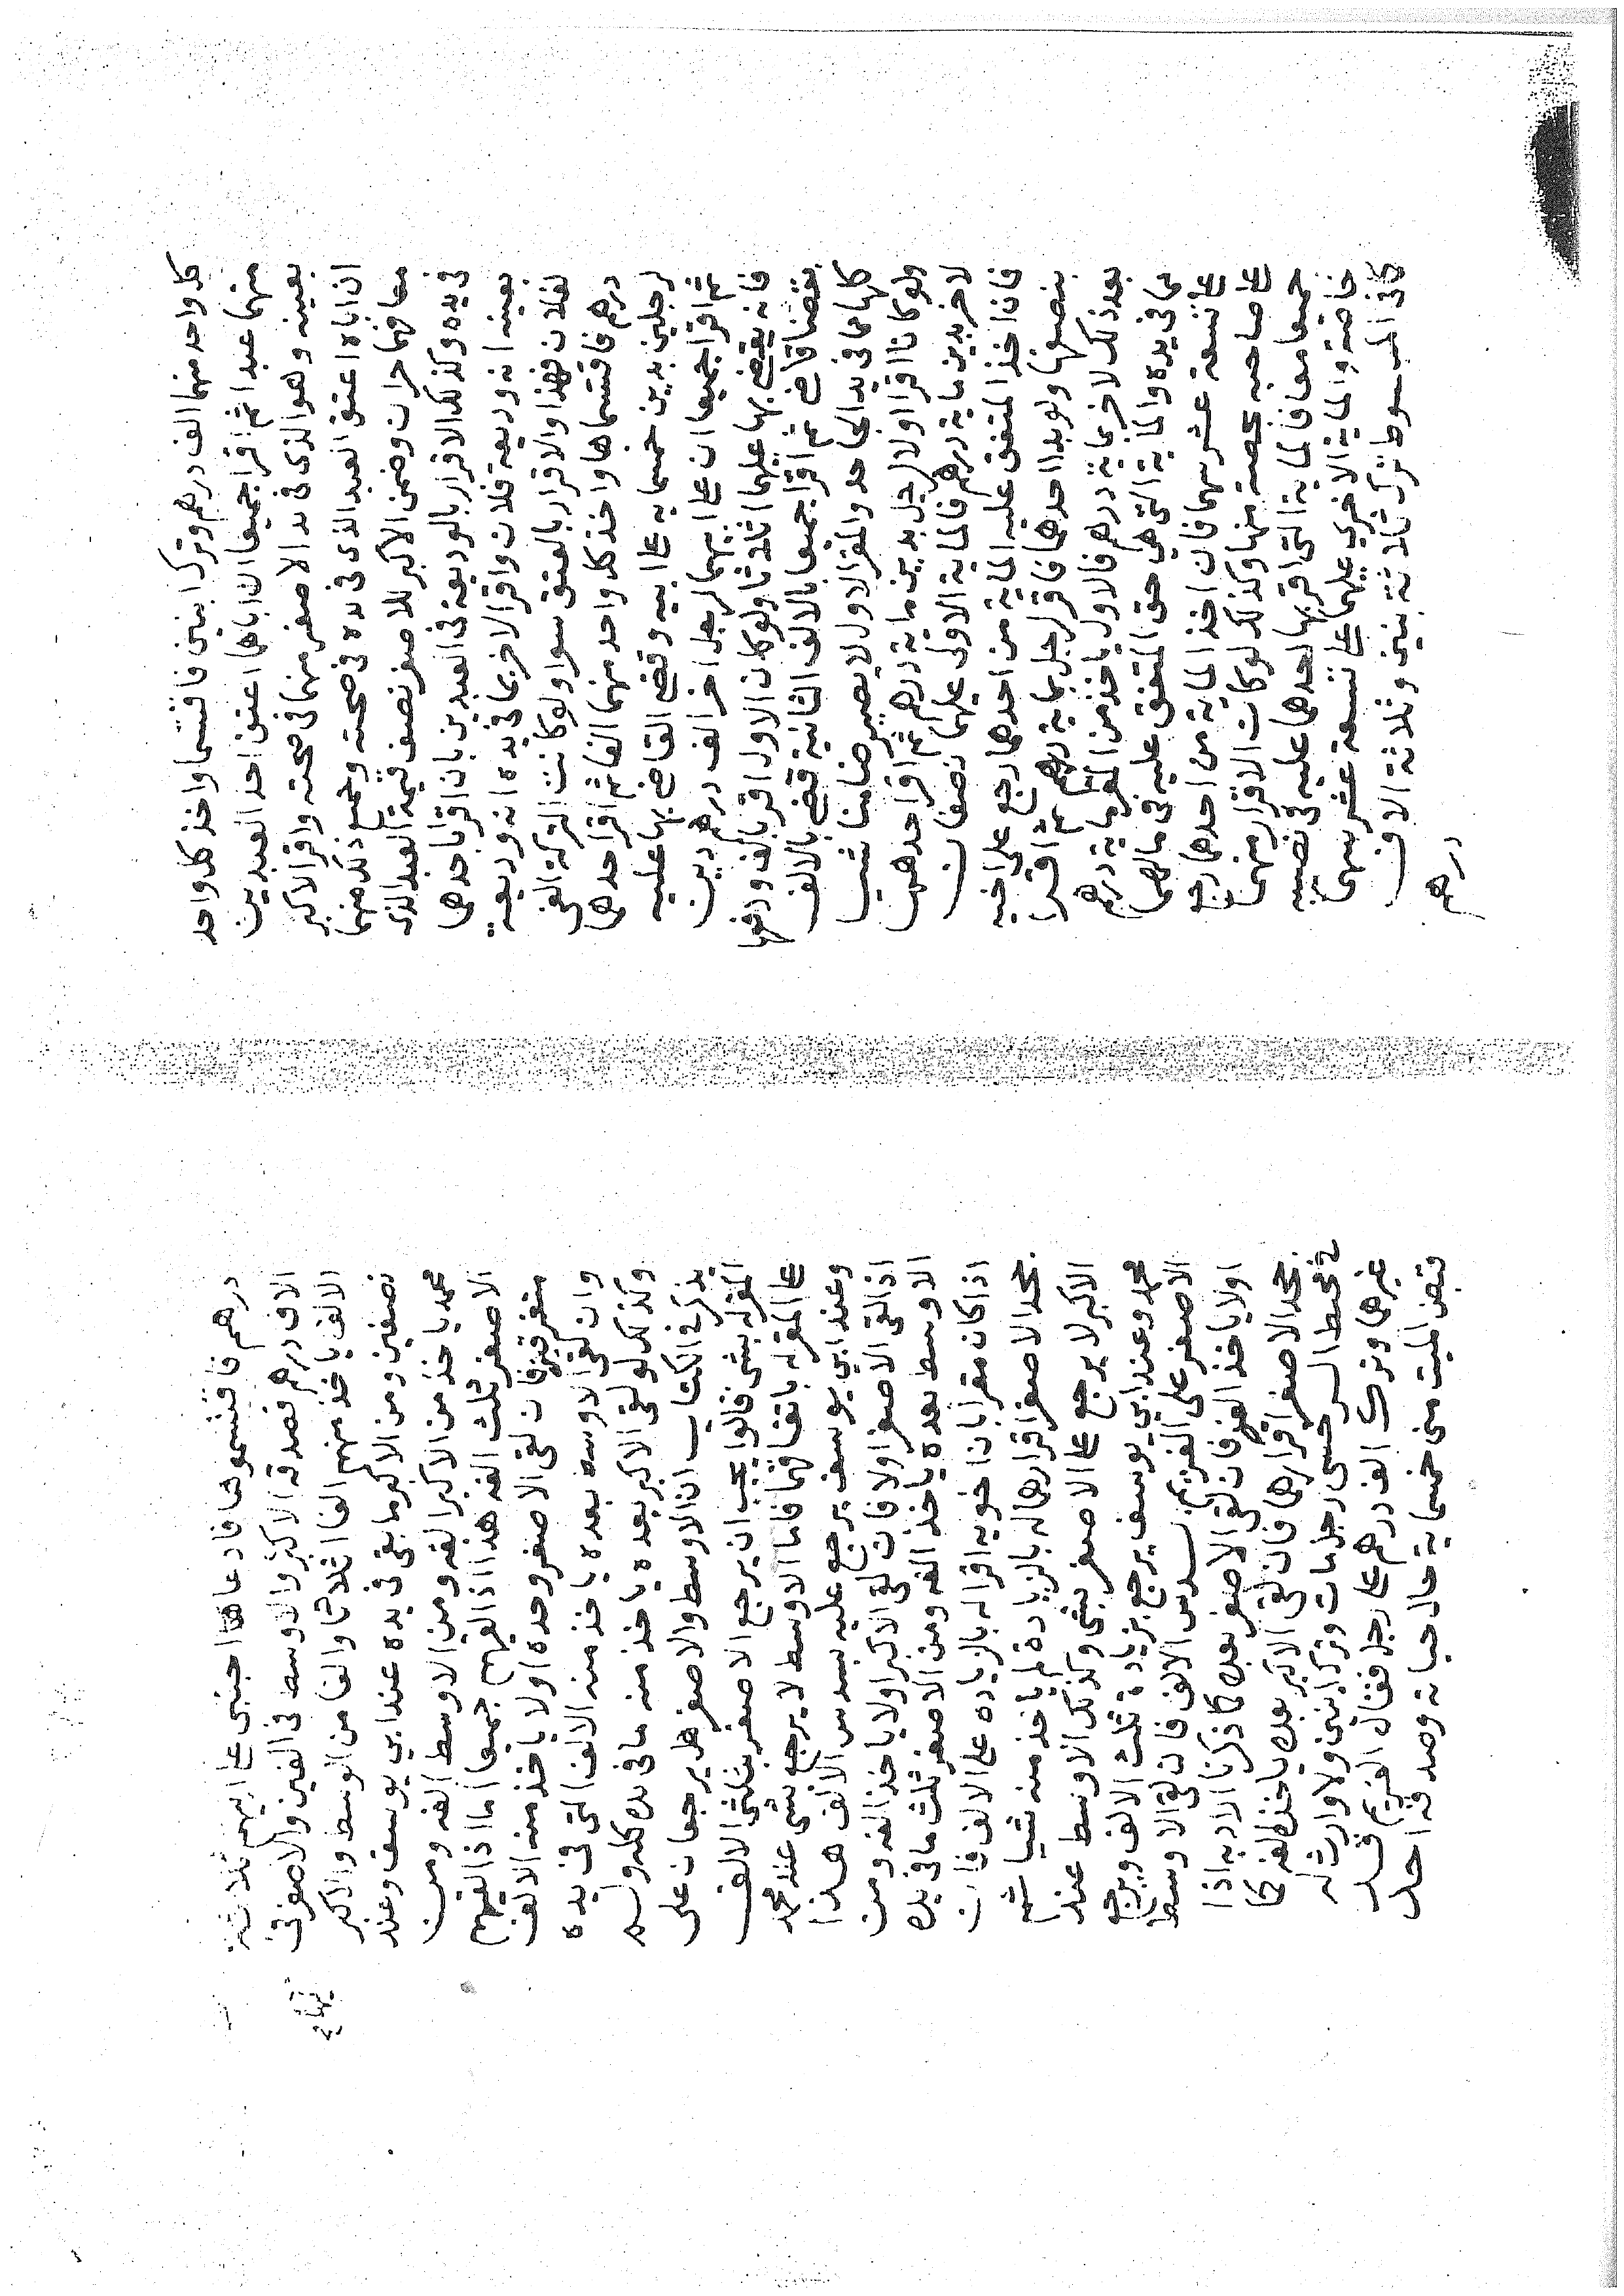 كل واحد منهما الف درهم وترك ابنين فاقتسما واخذ كل واحد
منهما عبدا ثم اقرا جميعا ان اباهما اعتق احد العبدين
بعينه وهو الذى فى يد الاصغر منهما فى صحته واقر الاكبر
ان اباه اعتق العبد الذى فى يده فى صحته وجميع ذلك منهما
معا فهما حران وضمن الاكبر للاصغر نصف قيمة العبد الذى
فى يده وكذلك الاقرار بالوديعة فى العبدين بان اقرا باحدهما
بعينه انه وديعة فلان واقر الاخر بما فى يده انه وديعة
لفلان فهذا والاقرار بالعتق سوا ولو كانت التركة الفى
درهم فاقتسماها واخذ كل واحد منهما الفا ثم اقر احدهما
لرجلين بدين خمسماية على ابيه وقضى القاضى بها عليه
ثم اقرا جميعا ان على ابيهما لرجل اخر الف درهم دين
فانه يقضى بها عليهما اثلاثا ولو كان الاول اقر بالف ودفعها
بقضا قاض ثم اقرا جميعا بالالف الثانية قضى بالالف
كلها مما فى يد الجاحد والمقر الاول لا يصير ضامنا شيا
ولو كانا اقرا اولا لرجل بدين ماية درهم ثم اقر احدهما
لاخر بدين ماية درهم فالماية الاولى عليهما نصفان
فاذا اخذ المتفق عليه الماية من احدهما رجع على اخيه
بنصفها ولو بدا احدهما فاقر لرجل بماية درهم ثم اقرا
بعد ذلك لاخر بماية درهم فالاول ياخذ من المقر ماية درهم
مما فى يده والماية التى هى حق المتفق عليه فى مالهما
على تسعة عشر سهما فان اخذ الماية من احدهما رجع
على صاحبه بحصته منها وكذلك لو كان الاقرار منهما
جميعا معا فالماية التى اقر بها احدهما عليه فى نصيبه
خاصة والماية الاخرى عليهما على تسعة عشر سهما
كذا فى المبسوط ترك ثلاثة بنين وثلاثة الاف
درهم
درهم فاقتسموها فادعا اجنبى على ابيهم ثلاثة
الاف درهم فصدقه الاكبر والاوسط فى الفين والاصغر فى
الالف ياخذ منهم الفا اثلاثا والفا من الاوسط والاكبر
نصفين ومن الاكبر ما بقى فى يده عند ابى يوسف وعند
محمد ياخذ من الاكبر الفه ومن الاوسط الفه ومن
الاصغر ثلث الفه هذا اذا لقيهم جميعا اما اذا لقيهم
متفرقين فان لقى الاصغر وحده اولا ياخذ منه الالف
وان لقى الاوسط بعده ياخذ منه الالف التى فى يده
وكذلك لو لقى الاكبر بعده ياخذ منه ما فى يده كله ولم
يذكر فى الكتاب ان الاوسط والاصغر هل يرجعان على
المقر له بشى قالوا يجب ان يرجع الاصغر بثلثى الالف
على المقر له باتفاقهما فاما الاوسط لا يرجع بشى عند محمد
وعند ابى يوسف يرجع عليه بسدس الالف هذا
اذا لقى الاصغر اولا فان لقى الاكبر اولا ياخذ الفه ومن
الاوسط بعده ياخذ الفه ومن الاصغر ثلث ما فى يده
اذا كان مقرا بان اخويه اقرا له بالزياده على الالف فان
جحد الاصغر اقرارهما له بالزيادة لم ياخذ منه شيا ثم
الاكبر لا يرجع على الاصغر بشى وكذلك الاوسط عند
محمد وعند ابى يوسف يرجع بزيادة ثلث الالف ويرجع
الاصغر على الغريم بسدس الالف فان لقى الاوسط
اولا ياخذ الفه فان لقى الاصغر بعده كما ذكرنا الا انه اذا
جحد الاصغر اقرارهما فان لقى الاكبر بعده ياخذ الفه كما
فى محيط السرخسى رجل مات وترك ابنين ولا وارث له
غيرهما وترك الف درهم على رجل فقال الغريم قد
قبض الميت منى خمسماية حال حياته وصدقه احد